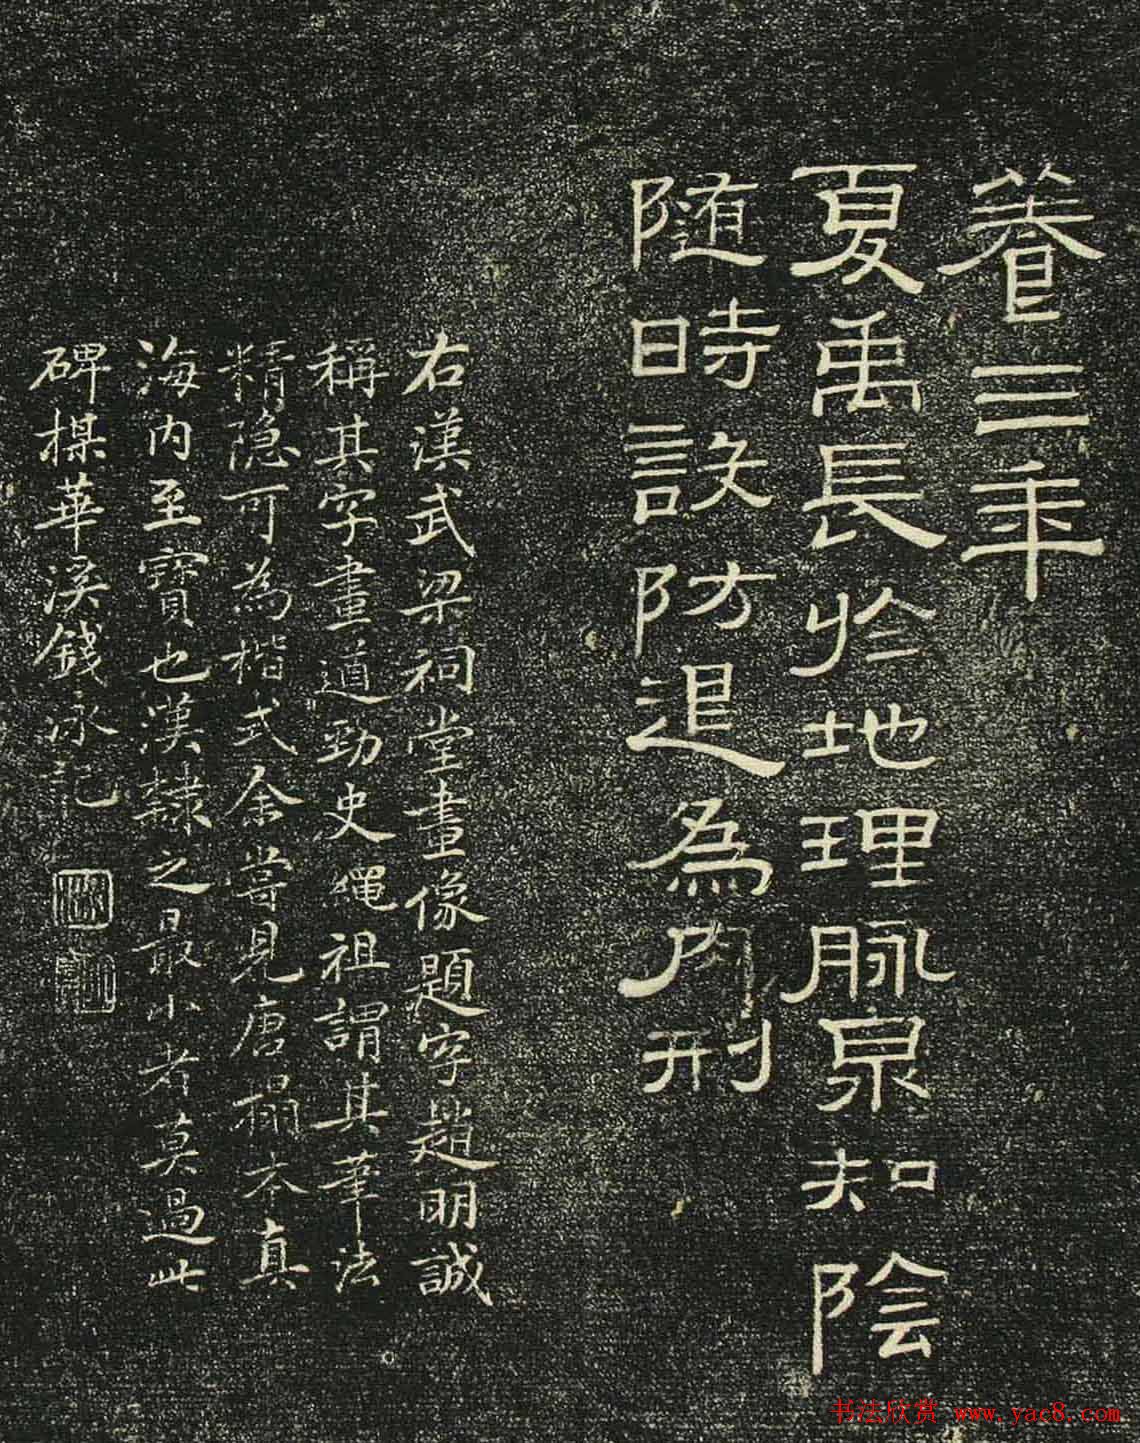 養三年
夏禹長於地理脉泉知陰
随時設防退為肉刑
右漢武梁祠堂畫像題字趙明誠
稱其字畫遒勁史繩祖謂其筆法
精隐可為楷式余嘗見唐搨本真
海内至寶也漢隸之最小者莫過此
碑楳華溪錢泳記
书法欣赏 www.yac8.com